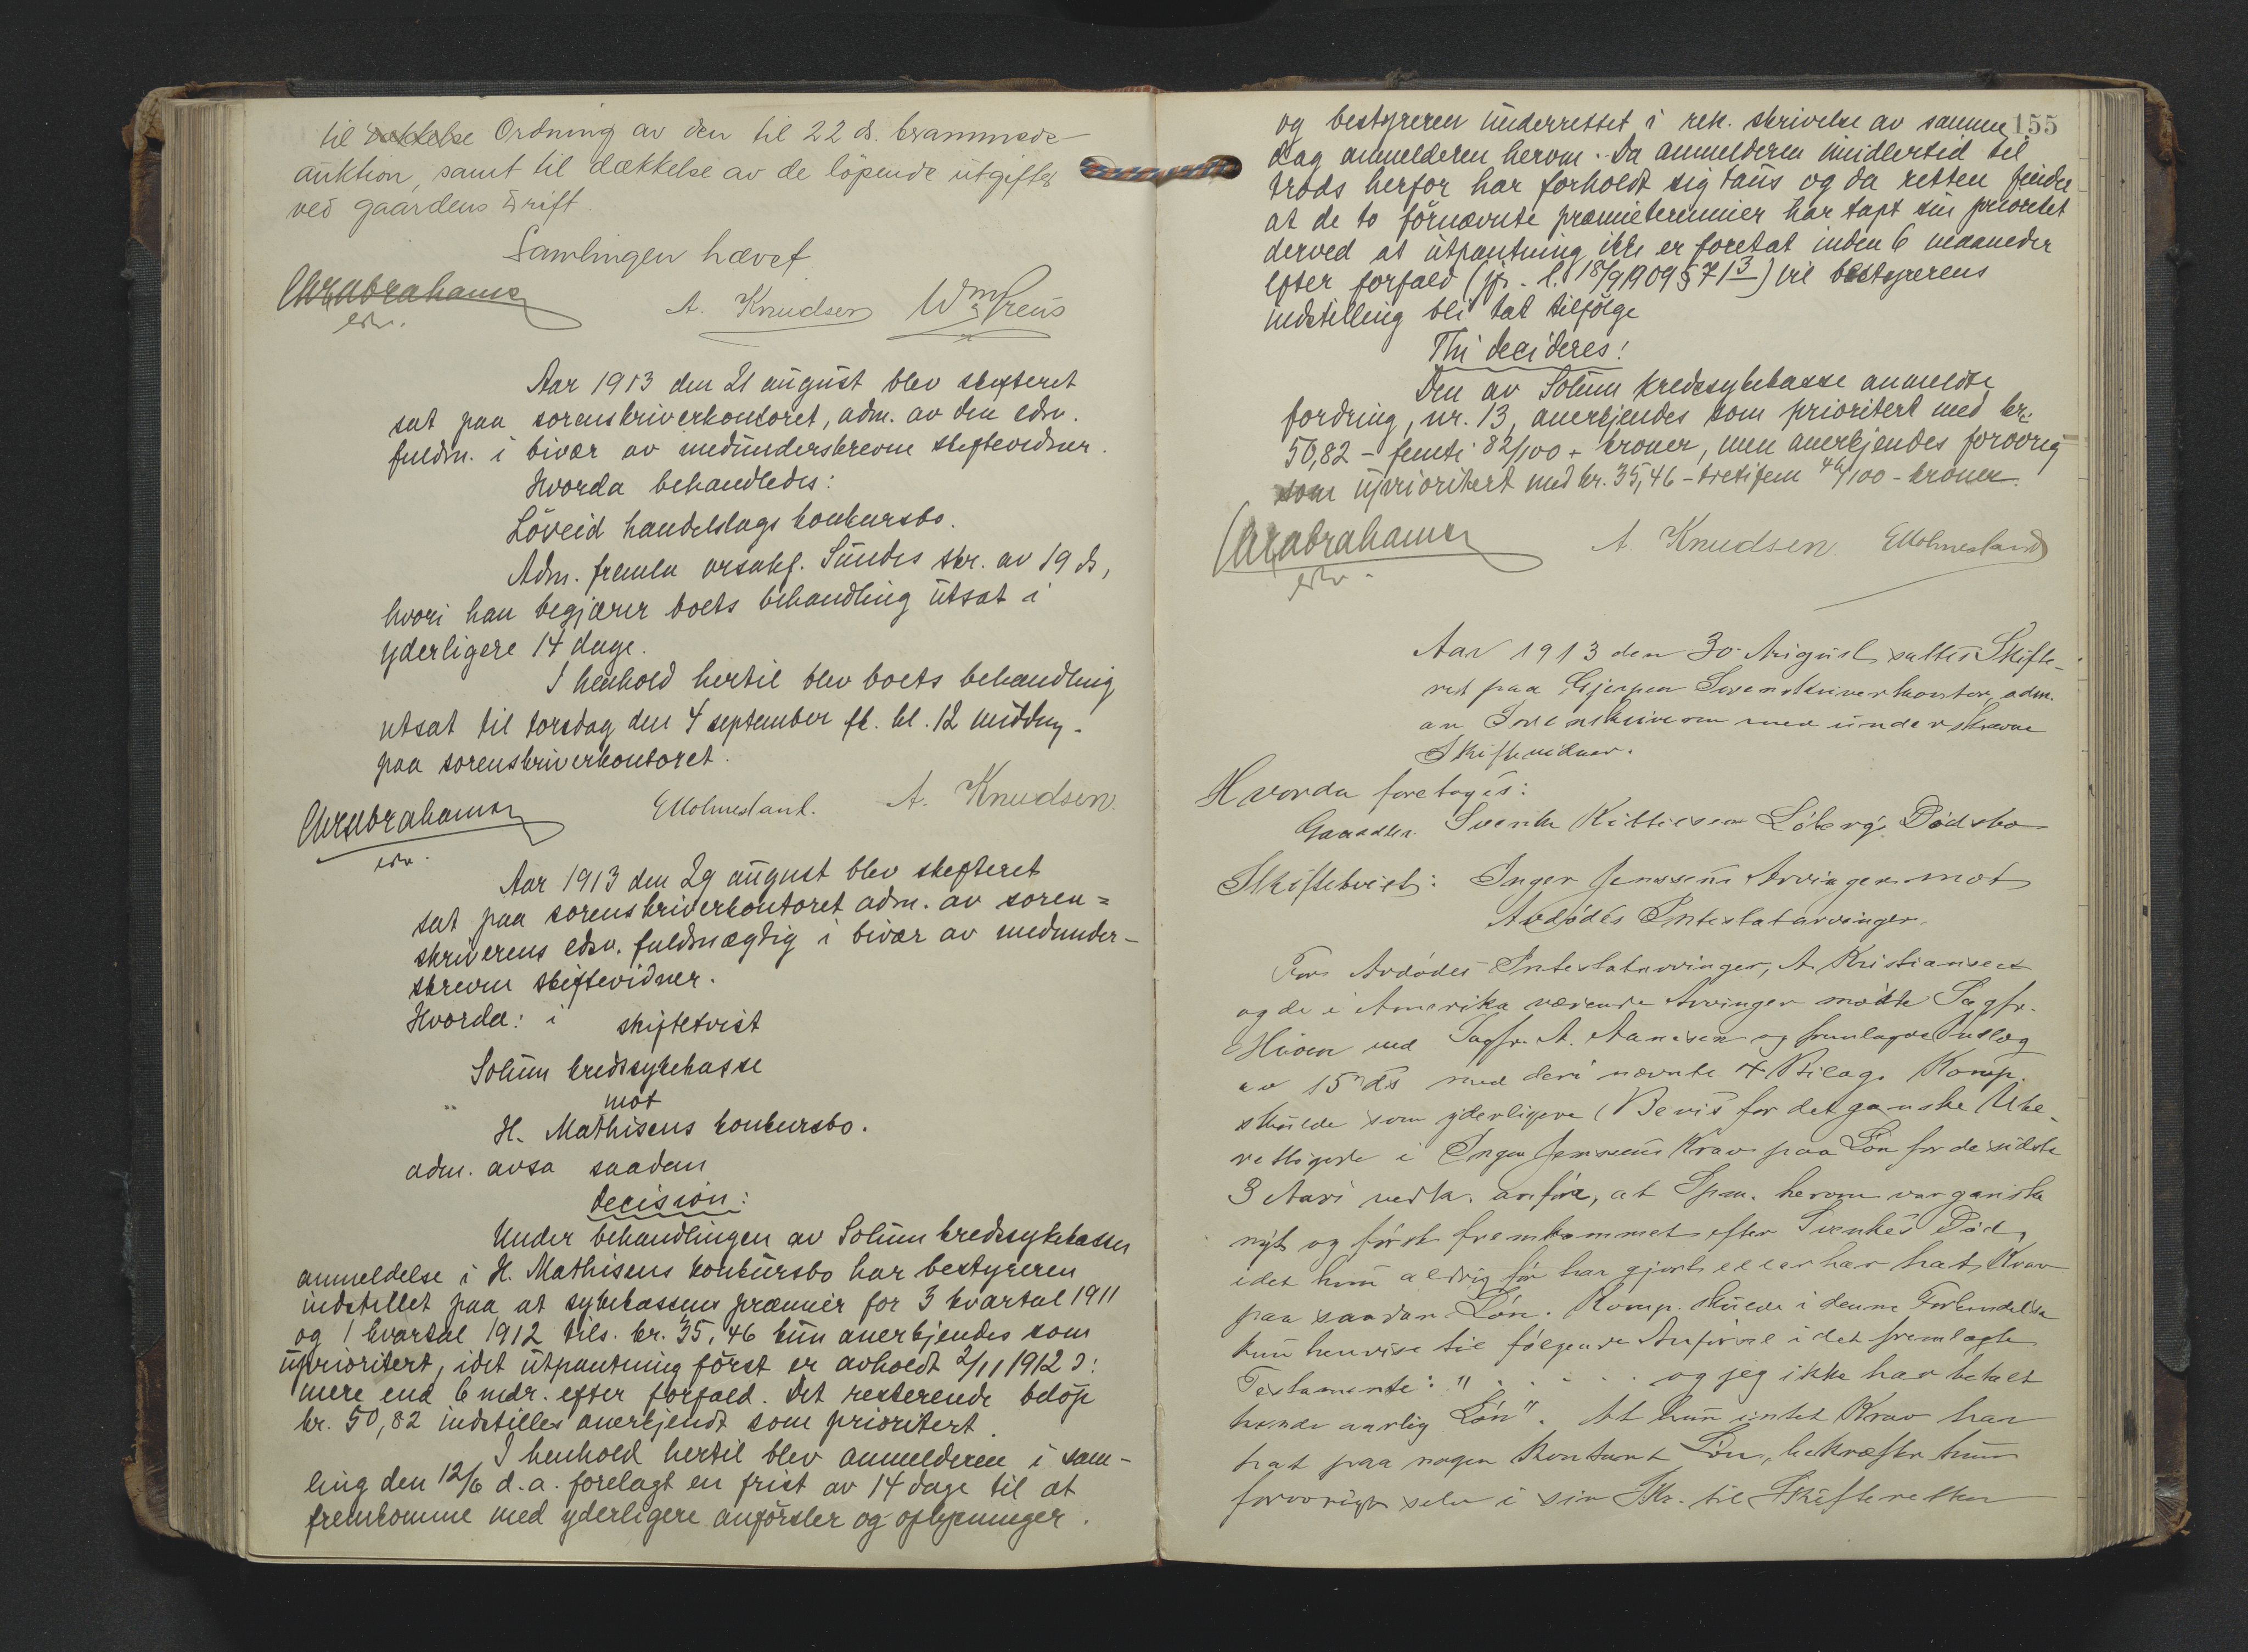 til Ordning av den til 22 ds. berammede
auktion, samt til dækkelse av de löpende utgifter
ved gaardens drift.
Samlingen hævet
Chr Abrahamsen
edsv.
A. Knudsen Wm Preus
Aar 1913 den 21 august blev skifteret
sat paa sorenskriverkontoret, adm. av den edsv.
fuldm. i bivær av medunderskrevne skiftevidner.
Hvorda behandledes:
Löveid handelslags konkursbo.
Adm. fremla orsakf. Sundes skr. av 19 ds,
hvori han begjærer boets behandling utsat i
yderligere 14 dage.
I henhold hertil blev boets behandling
utsat til torsdag den 4 september fk. kl. 12 middag
paa sorenskriverkontoret.
Chr Abrahamsen
edsv.
E Holmesland. A. Knudsen
Aar 1913 den 29 august blev skifteret
sat paa sorenskriverkontoret adm. av soren=
skriverens edsv. fuldmægtig i bivær av medunder-
skrevne skiftevidner.
Hvorda: i skiftetvist
Solum kredssykekasse
mot
H. Mathisens konkursbo.
adm. avsa saadan
decision:
Under behandlingen av Solum kredssykekasses
anmeldelse i H. Mathisens konkursbo har bestyreren
indstillet paa at sykekassens præmier for 3 kvartal 1911
og 1 kvartal 1912 tils. kr. 35,46 kun anerkjendes som
uprioritert, idet utpantning först er avholdt 2/11 1912 ɔ:
mere end 6 mdr. efter forfald. Det resterende belöp
kr. 50,82 indstilles anerkjendt som prioritert.
I henhold hertil blev anmelderen i sam-
ling den 12/6 d.a. forelagt en frist av 14 dage til at
fremkomme med yderligere anförsler og oplysninger.
155
og bestyreren underrettet i rek. skrivelse av samme
dag anmelderen herom. Da anmelderen imidlertid til
trods herfor har forholdt sig taus og da retten finder
at de to fornævnte præmieterminer har tapt sin prioritet
derved at utpantning ikke er foretat inden 6 maaneder
efter forfald (jfr. l. 18/9 1909 § 71 3) vil bestyrerens
indstilling bli tat tilfölge
Thi decideres!
Den av Solum kredssykekasse anmeldte
fordring, nr. 13, anerkjendes som prioritert med kr.
50,82 - femti 82/100 - kroner, men anerkjendes forövrig
som uprioritert med kr. 35,46 - tretifem 46/100 - kroner.
Chr Abrahamsen
edsv.
A. Knudsen. E Holmesland
Aar 1913 den 30 August sattes Skifte-
ret paa Gjerpen Sorenskriverkontor, adm.
av Sorenskriveren med underskrevne
Skiftevidner.
Hvorda foretoges:
Gaardbr. Svenke Kittilsen Löbergs Dödsbo
Skiftetvist: Inger Jenssens Arvinger mot
Avdödes Intestatarvinger.
For Avdödes Intestatarvinger, A. Kristiansen
og de i Amerika værende Arvinger mötte Sagfr.
ved Sagfr. A. Aanesen og fremlagde Indlæg
av 15 ds med deri nævnte 4 Bilag. Komp.
skulde som yderligere Bevis for det ganske Ube-
rettigede i Inger Jenssens Krav paa Lön for de sidste
3 Aar anföre, at Spm. herom var ganske
nyt og först fremkommet efter Svenkes Död,
idet hun aldrig för har gjort eller har hat Krav
paa saadan Lön. Komp. skulde i denne Forbindelse
kun henvise til fölgende Anförsel i det fremlagte
Testamente: " . . . . . og jeg ikke har betalt
hende aarlig Lön". At hun intet Krav har
hat paa nogen Kontant Lön, bekræfter hun
forövrigt selv i sin Skr. til Skifteretten